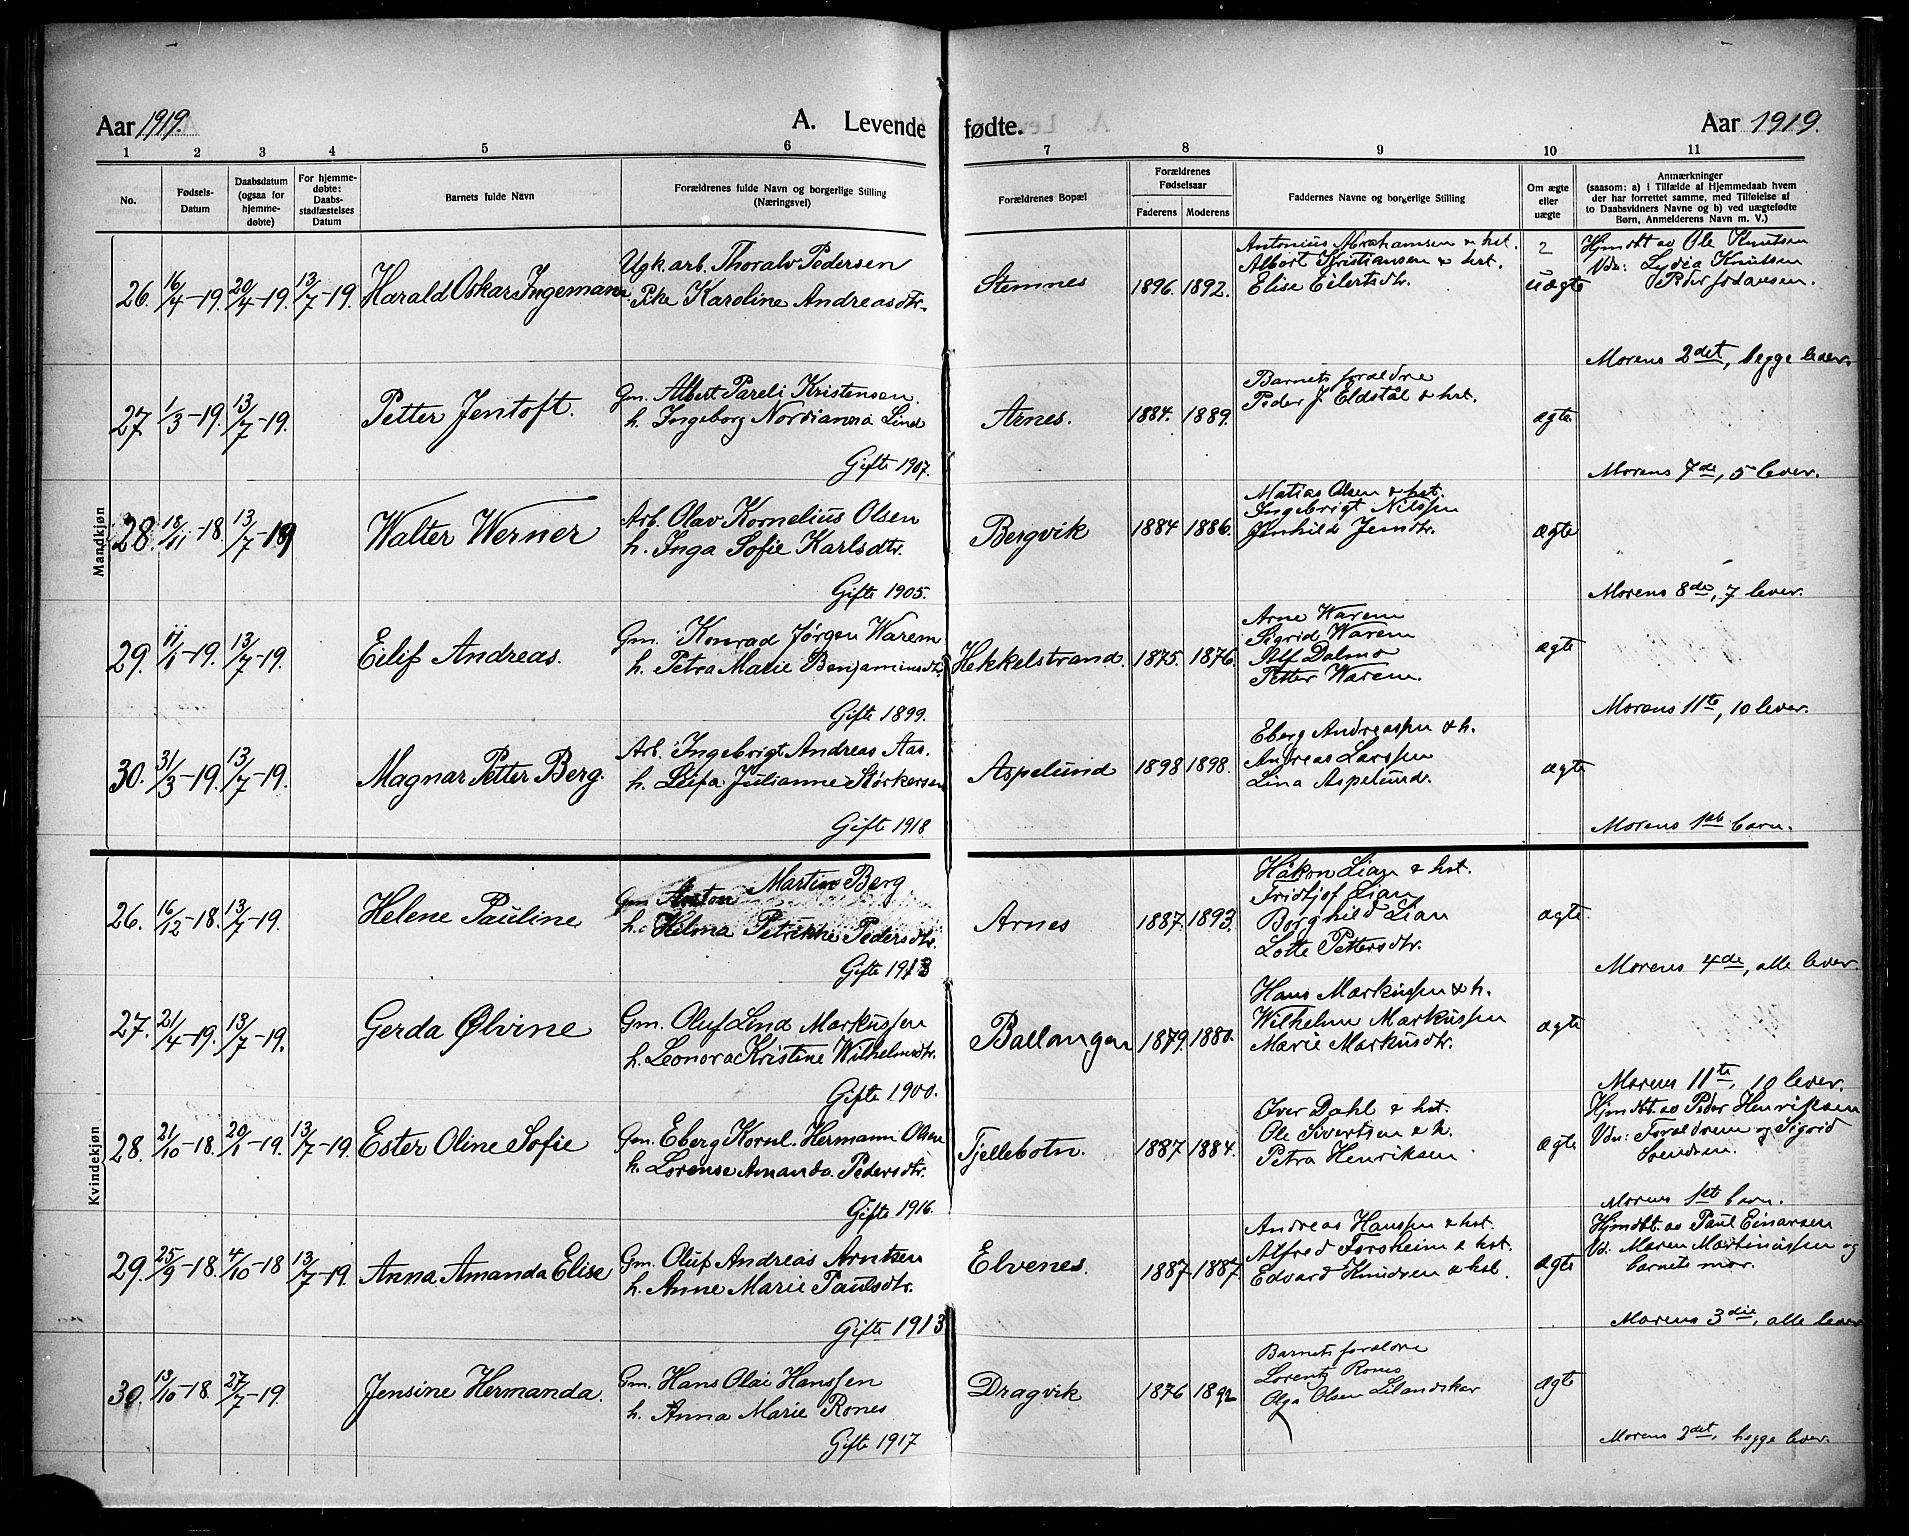 Aar 1919.
A. Levende fødte.
Aar 1919.
1 2 3 4 5 6 7 8 9 10 11
No.
Fødsels-Datum
Daabsdatum (ogsaa for hjemme-døbte)
For hjemme-døbte: Daabs-stadfæstelses Datum
Barnets fulde Navn
Forældrenes fulde Navn og borgerlige Stilling (Næringsvei)
Forældrenes Bopæl
Forældrenes Fødselsaar
Faderens Moderens
Faddernes Navne og borgerlige Stilling
Om ægte eller uægte
Anmærkninger
(saasom: a) i Tilfælde af Hjemmedaab hvem
der har forrettet samme, med Tilføielse af
to Daabsvidners Navne og b) ved uægtefødte
Børn, Anmelderens Navn m. V.)
Mandkjøn
26. 16/4-19. 20/4-19. 13/7-19. Harald Oskar Ingemann
Ugk. arb. Thoralv Pedersen
Pike Karoline Andreasdtr.
Stemnes 1896. 1892.
Antonius Abrahamsen & hst.
Albert Kristiansen & hst.
Elise Eilertsdtr.
2
uægte
Hjmdbt av Ole Knutsen
Vdn: Lydia Knutsen
Peder Johansen.
Morens 2det, begge lever.
27 1/3-19. 13/7-19. Petter Jentoft.
Gm. Albert Pareli Kristensen.
h. Ingeborg Nordianna Lind
Gifte 1907.
Arnes. 1884. 1889.
Barnets forældre
Peder J. Eldstål & hst.
ægte
Morens 7de, 5 lever.
28. 18/11-18. 13/7-19 Walter Werner
Arb. Olav Kornelius Olsen
h. Inga Sofie Karlsdtr.
Gifte 1905.
Bergvik 1884 1886.
Matias Olsen & hst.
Ingebrigt Nilssen
Jensdtr.
ægte
Morens 8de, 7 lever.
29. 11/1-19. 13/7-19. Eilif Andreas.
Gm. Konrad Jørgen Warem
h. Petra Marie Benjaminsdtr.
Gifte 1899.
Hekkelstrand. 1875. 1876.
Arne Warem
Sigrid Warem
Alf Dalmo
Petter Warem.
ægte
Morens 11te, 10 lever.
30. 31/3-19. 13/7-19. Magnar Petter Berg.
Arb. Ingebrigt Andreas Aas.
h. Leifa Julianne Størkersen
Gifte 1918.
Aspelund 1898 1898.
Eberg Andreassen & h.
Andreas Larssen
Lina Aspelund.
ægte
Morens 1ste barn.
Kvindekjøn
26. 16/12-18. 13/7-19. Helene Pauline
Gm Anton Martin Berg
h. Helma Petrikke Pedersdtr.
Gifte 1913
Arnes 1887. 1893.
Håkon Lian & hst.
Fridtjof Lian
Borghild Lian
Lotte Pettersdtr.
ægte.
Morens 4de, alle lever.
27. 21/4-19. 13/7-19. Gerda Ølvine
Gm. Oluf Lind Markussen
h. Leonora Kristine Wilhelmsdtr.
Gifte 1900.
Ballangen 1879. 1880.
Hans Markussen & h.
Wilhelm Markussen
Marie Markusdtr.
ægte
Morens 11te, 10 lever.
28. 21/10-18. 20/1-19. 13/7-19. Ester Oline Sofie
Gm. Eberg Kornl. Hermann Olsen
h. Lorense Amanda Pedersdtr.
Gifte 1916.
Tjellebotn. 1887 1884.
Iver Dahl & hst.
Ole Sivertsen & h.
Petra Henriksen
ægte
Hjmdbt. av Peder Henriksen
Vdn: Forældrene og Sigrid
Svendsen.
Morens 1ste barn.
29. 25/9-18. 4/10-18 13/7-19. Anna Amanda Elise
Gm. Oluf Andreas Arntzen
h. Anne Marie Paulsdtr.
Gifte 1913
Elvenes. 1887 1887
Andreas Hanssen & hst.
Alfred Forsheim & hst.
Edvard Knudsen & hst.
ægte
Hjmdbt. av Paul Einarsen
Vd: Maren Martinussen og
barnets mor.
Morens 3die, alle lever
30. 13/10-18. 27/7-19. Jensine Hermanda.
Gm. Hans Olai Hanssen
h. Anna Marie Rones
Gifte 1917
Dragvik 1876 1892
Barnets forældre
Lorentz Rones
Olga Olsen Lilandskar
ægte
Morens 2det, begge lever.